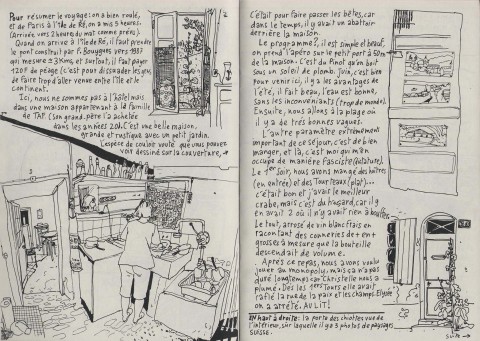 Pour résumer le voyage : on a bien roulé,
et de Paris à l'île de Ré, on a mis 5 heures.
(Arrivée vers 2 heures du mat comme prévu).
Quand on arrive à l'île de Ré, il faut prendre
le pont construit par Bouygues vers 1988
qui mesure ± 3 Kms, et surtout, il faut payer
120F de péage (c'est pour dissuader les gens
de faire trop d'aller venue entre l'île et le
continent.
Ici, nous ne sommes pas à l'hôtel mais
dans une maison appartenant à la famille
de TAF. (Son grand-père l'a achetée
dans les années 20). C'est une belle maison,
grande et rustique avec un petit jardin.
l'espèce de couloir voûté que vous pouvez
voir dessiné sur la couverture,
c'était pour faire passer les bêtes, car
dans le temps, il y avait un abattoir
derrière la maison.
Le programme ?, il est simple et beauf,
on prend l'apéro sur le petit port à 50m
de la maison. C'est du Pinot qu'on boit
sous un soleil de plomb. Juin, c'est bien
pour venir ici, il y a les avantages de
l'été, il fait beau, l'eau est bonne,
sans les inconvénients (trop de monde).
Ensuite, nous allons à la plage où
il y a de très bonnes vagues.
L'autre paramètre extrêmement
important de ce séjour, c'est de bien
manger, et là, c'est moi qui m'en
occupe de manière Fasciste
Le 1er soir, nous avons mangé des huîtres
(en entrée) et des Tourteaux (plat)...
c'était bon et j'avais le meilleur
crabe, mais c'est du hasard, car il y
en avait 2 où il n'y avait rien à bouffer.
Le tout, arrosé de vin blanc frais en
racontant des conneries de + en +
grosses à mesure que la bouteille
descendait de volume.
Après ce repas, nous avons voulu
jouer au monopoly, mais ça n'a pas
duré longtemps car Christelle nous a
plumé. Dès les 1ers tours elle avait
raflé la rue de la paix et les champs Elysée
on a arrêté. AU LIT !
EN haut à droite : la porte des chiottes vue de
l'intérieur, sur laquelle il y a 3 photos de paysages
SUISSE.
suite →